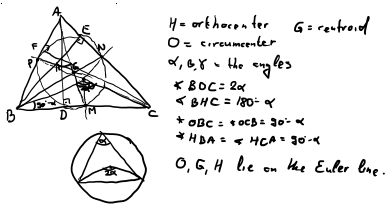 A
E
F
N
P
H
G
B
90°-α
D
M
C
α
2α
H = orthocenter G = centroid
O = circumcenter
α, β, γ = the angles
∢ BOC = 2α
∢ BHC = 180°-α
∢ OBC = ∢ OCB = 90°-α
∢ HBA = ∢ HCA = 90°-α
O, G, H lie on the Euler line.